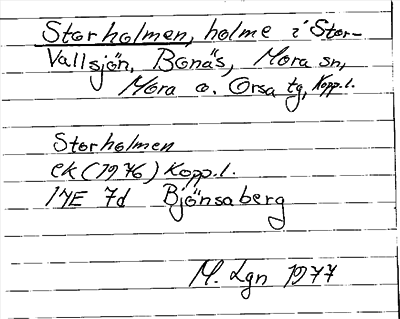 Storholmen, holme i Stor-
Vallsjön, Bonäs, Mora sn,
Mora o. Orsa tg, Kopp.l.
Storholmen
ek (1976) Kopp.l.
14E 7d Björnsaberg
M. Lgn 1977